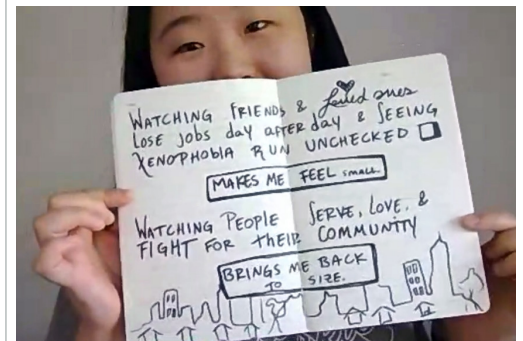 WATCHING FRIENDS & loved ones
LOSE jobs day AFTER day & SEEING
XENOPHOBIA RUN UNCHECKED
MAKES ME FEEL SMALL.
WATCHING PEOPLE SERVE, LOVE, &
FIGHT FOR THEIR COMMUNITY
BRINGS ME BACK
TO SIZE.